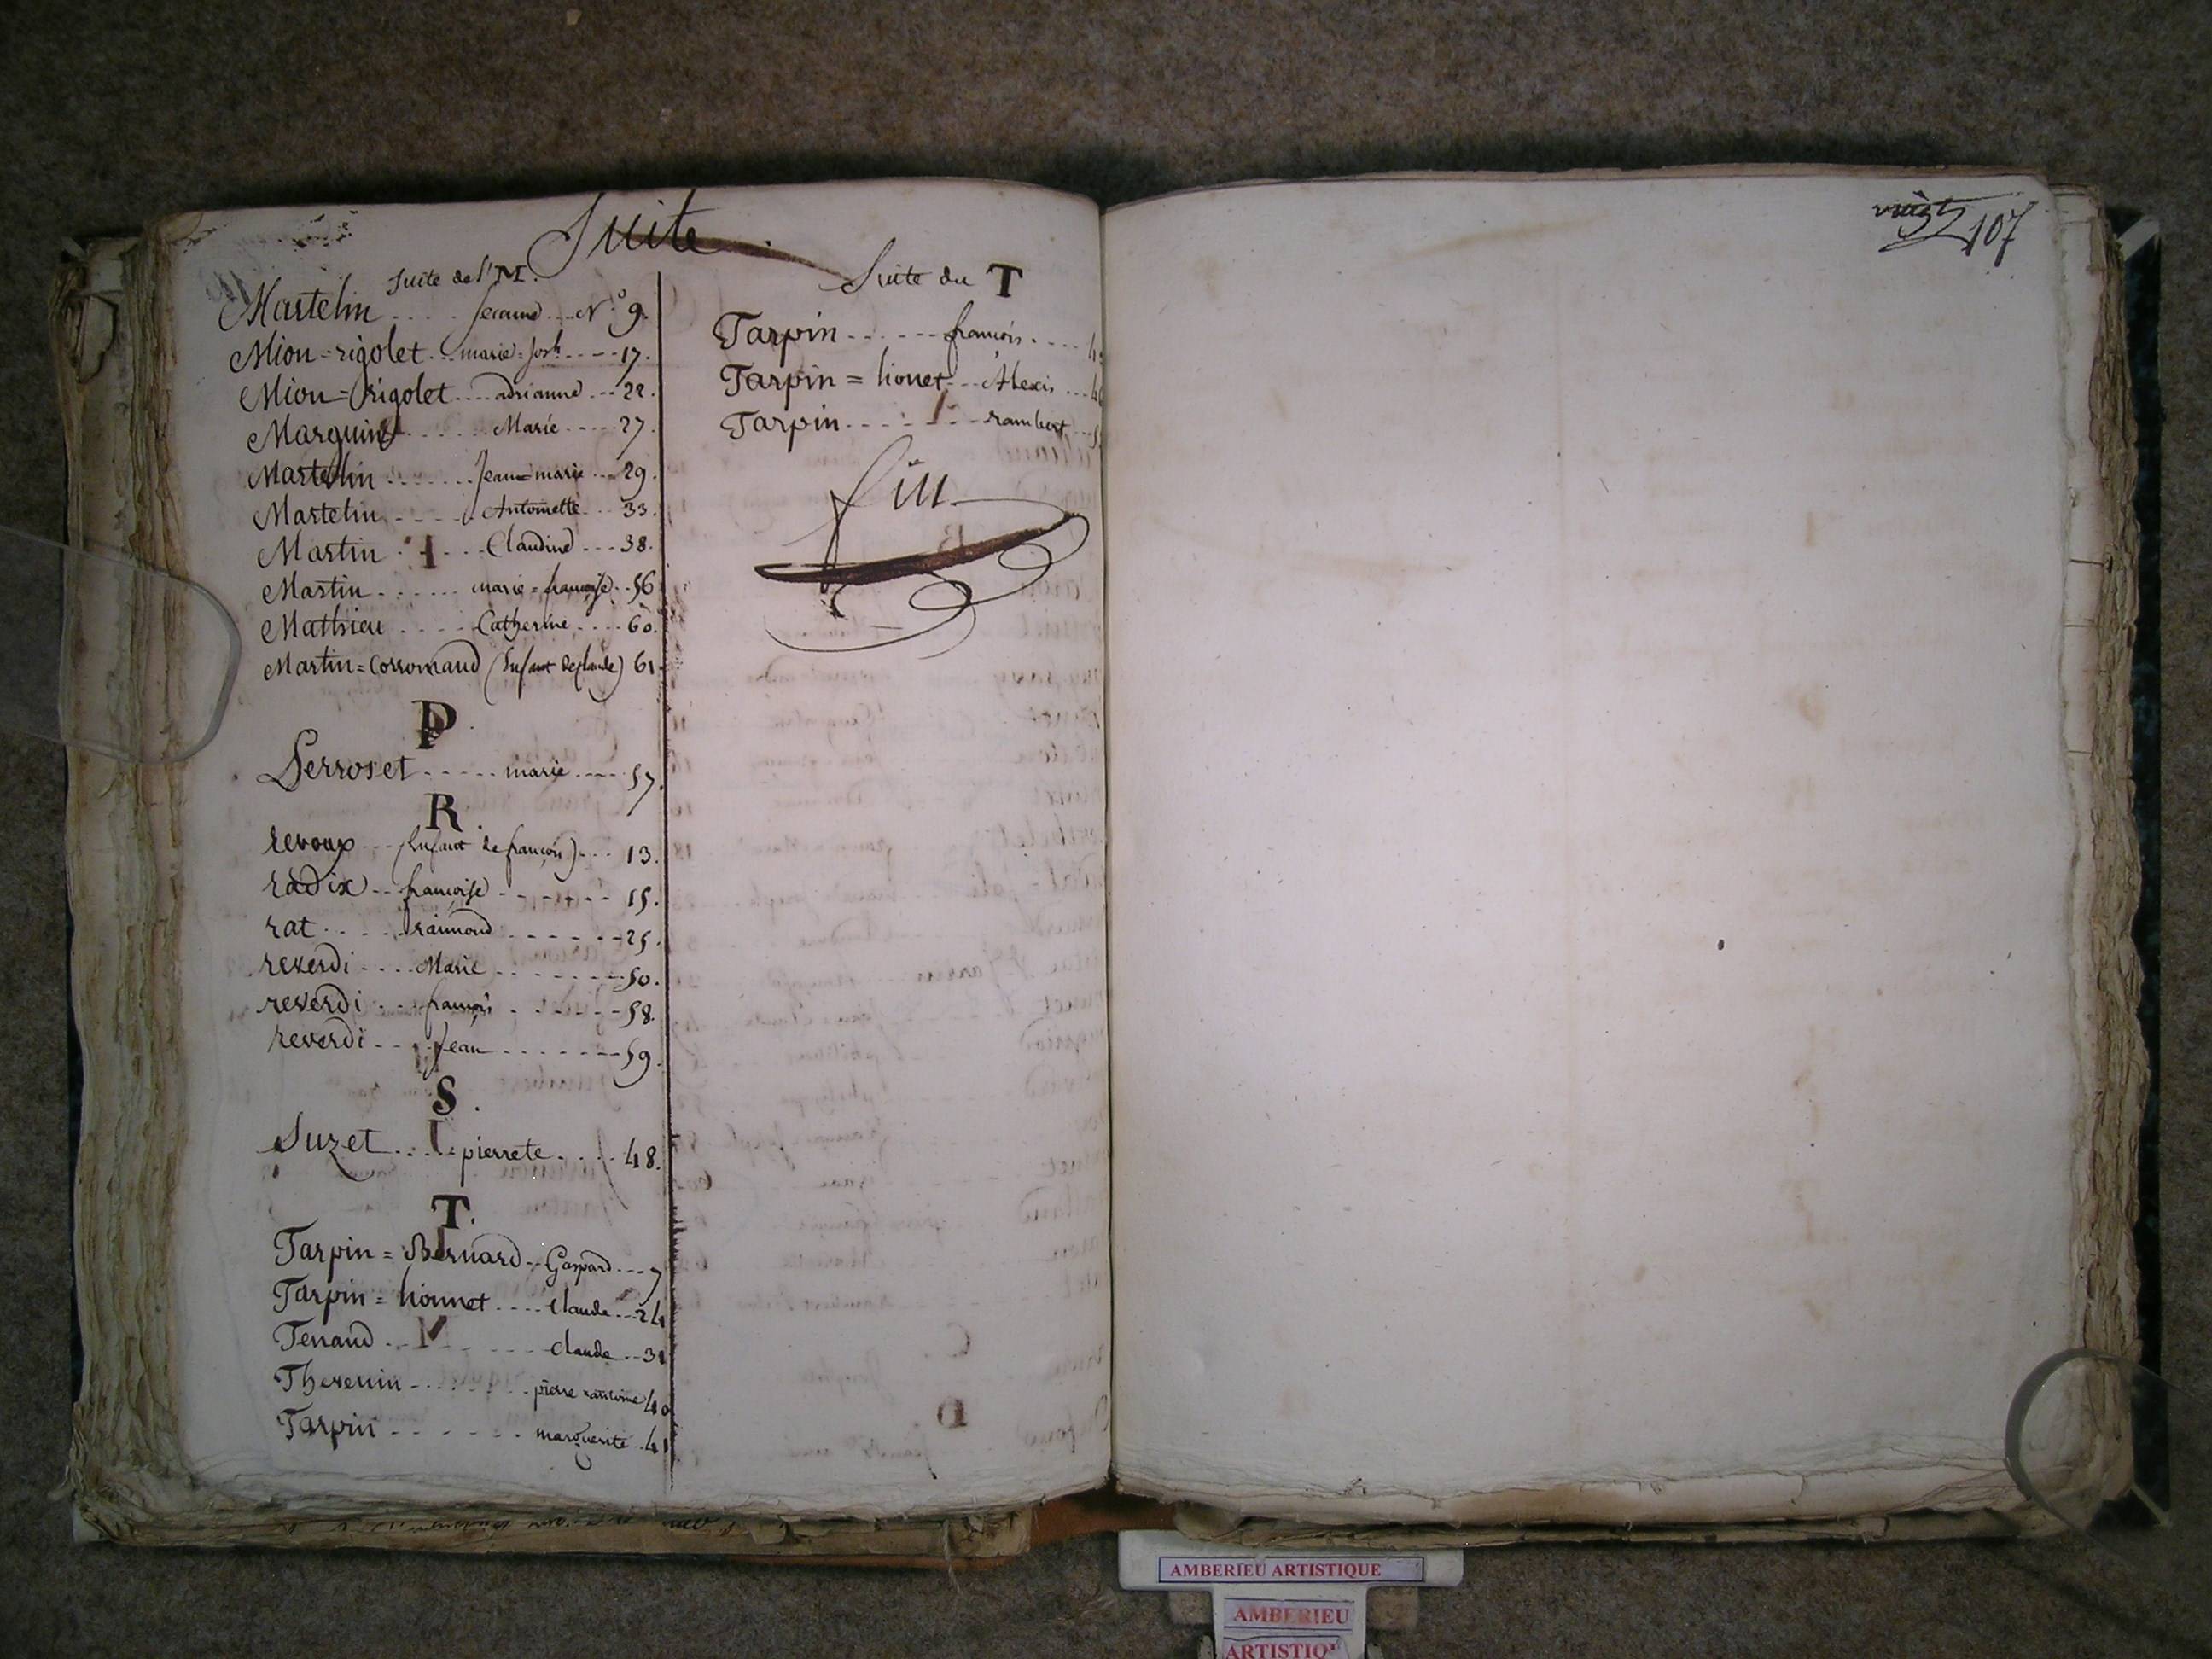 Suite
Suite de l'M.
Martelin .... Jeanne ... N.° 9.
Mion=rigolet... marie=Josh ---- 17.
Mion=rigolet .... adrianne --- 22.
Marguin ...... Marie ---- 27.
Martelin ....... Jean=marie --- 29.
Martelin ---- Antoinette --- 33.
Martin .... Claudine --- 38.
Martin ...... marie=françoise -- 56
Mathieu .... Catherine .... 60.
Martin=Corromaud (Enfant de claude) 61.
P.
Perroset ..... marie .... 57.
R.
revoux ... (Enfant de françois) ... 13.
radix -- françoise ------ 15.
rat .... raimond ------ 25.
reverdi .... Marie ------- 50.
reverdi ... françois ------ 58.
reverdi --- Jean ------- 59.
S.
Suzet .... pierrete .... 48.
T.
Tarpin=Bernard -- Gaspard --- 7
Tarpin=lionnet .... Claude --- 24
Tenand ------ Claude -- 31
Thevenin ------- pierre=antoine 40
Tarpin ------ marguerite .. 41
Suite du T
Tarpin ------ françois ....
Tarpin=lionet --- Alexis ...
Tarpin ------ rambert
fin
107
AMBERIEU ARTISTIQUE
AMBERIEU
ARTISTIQ